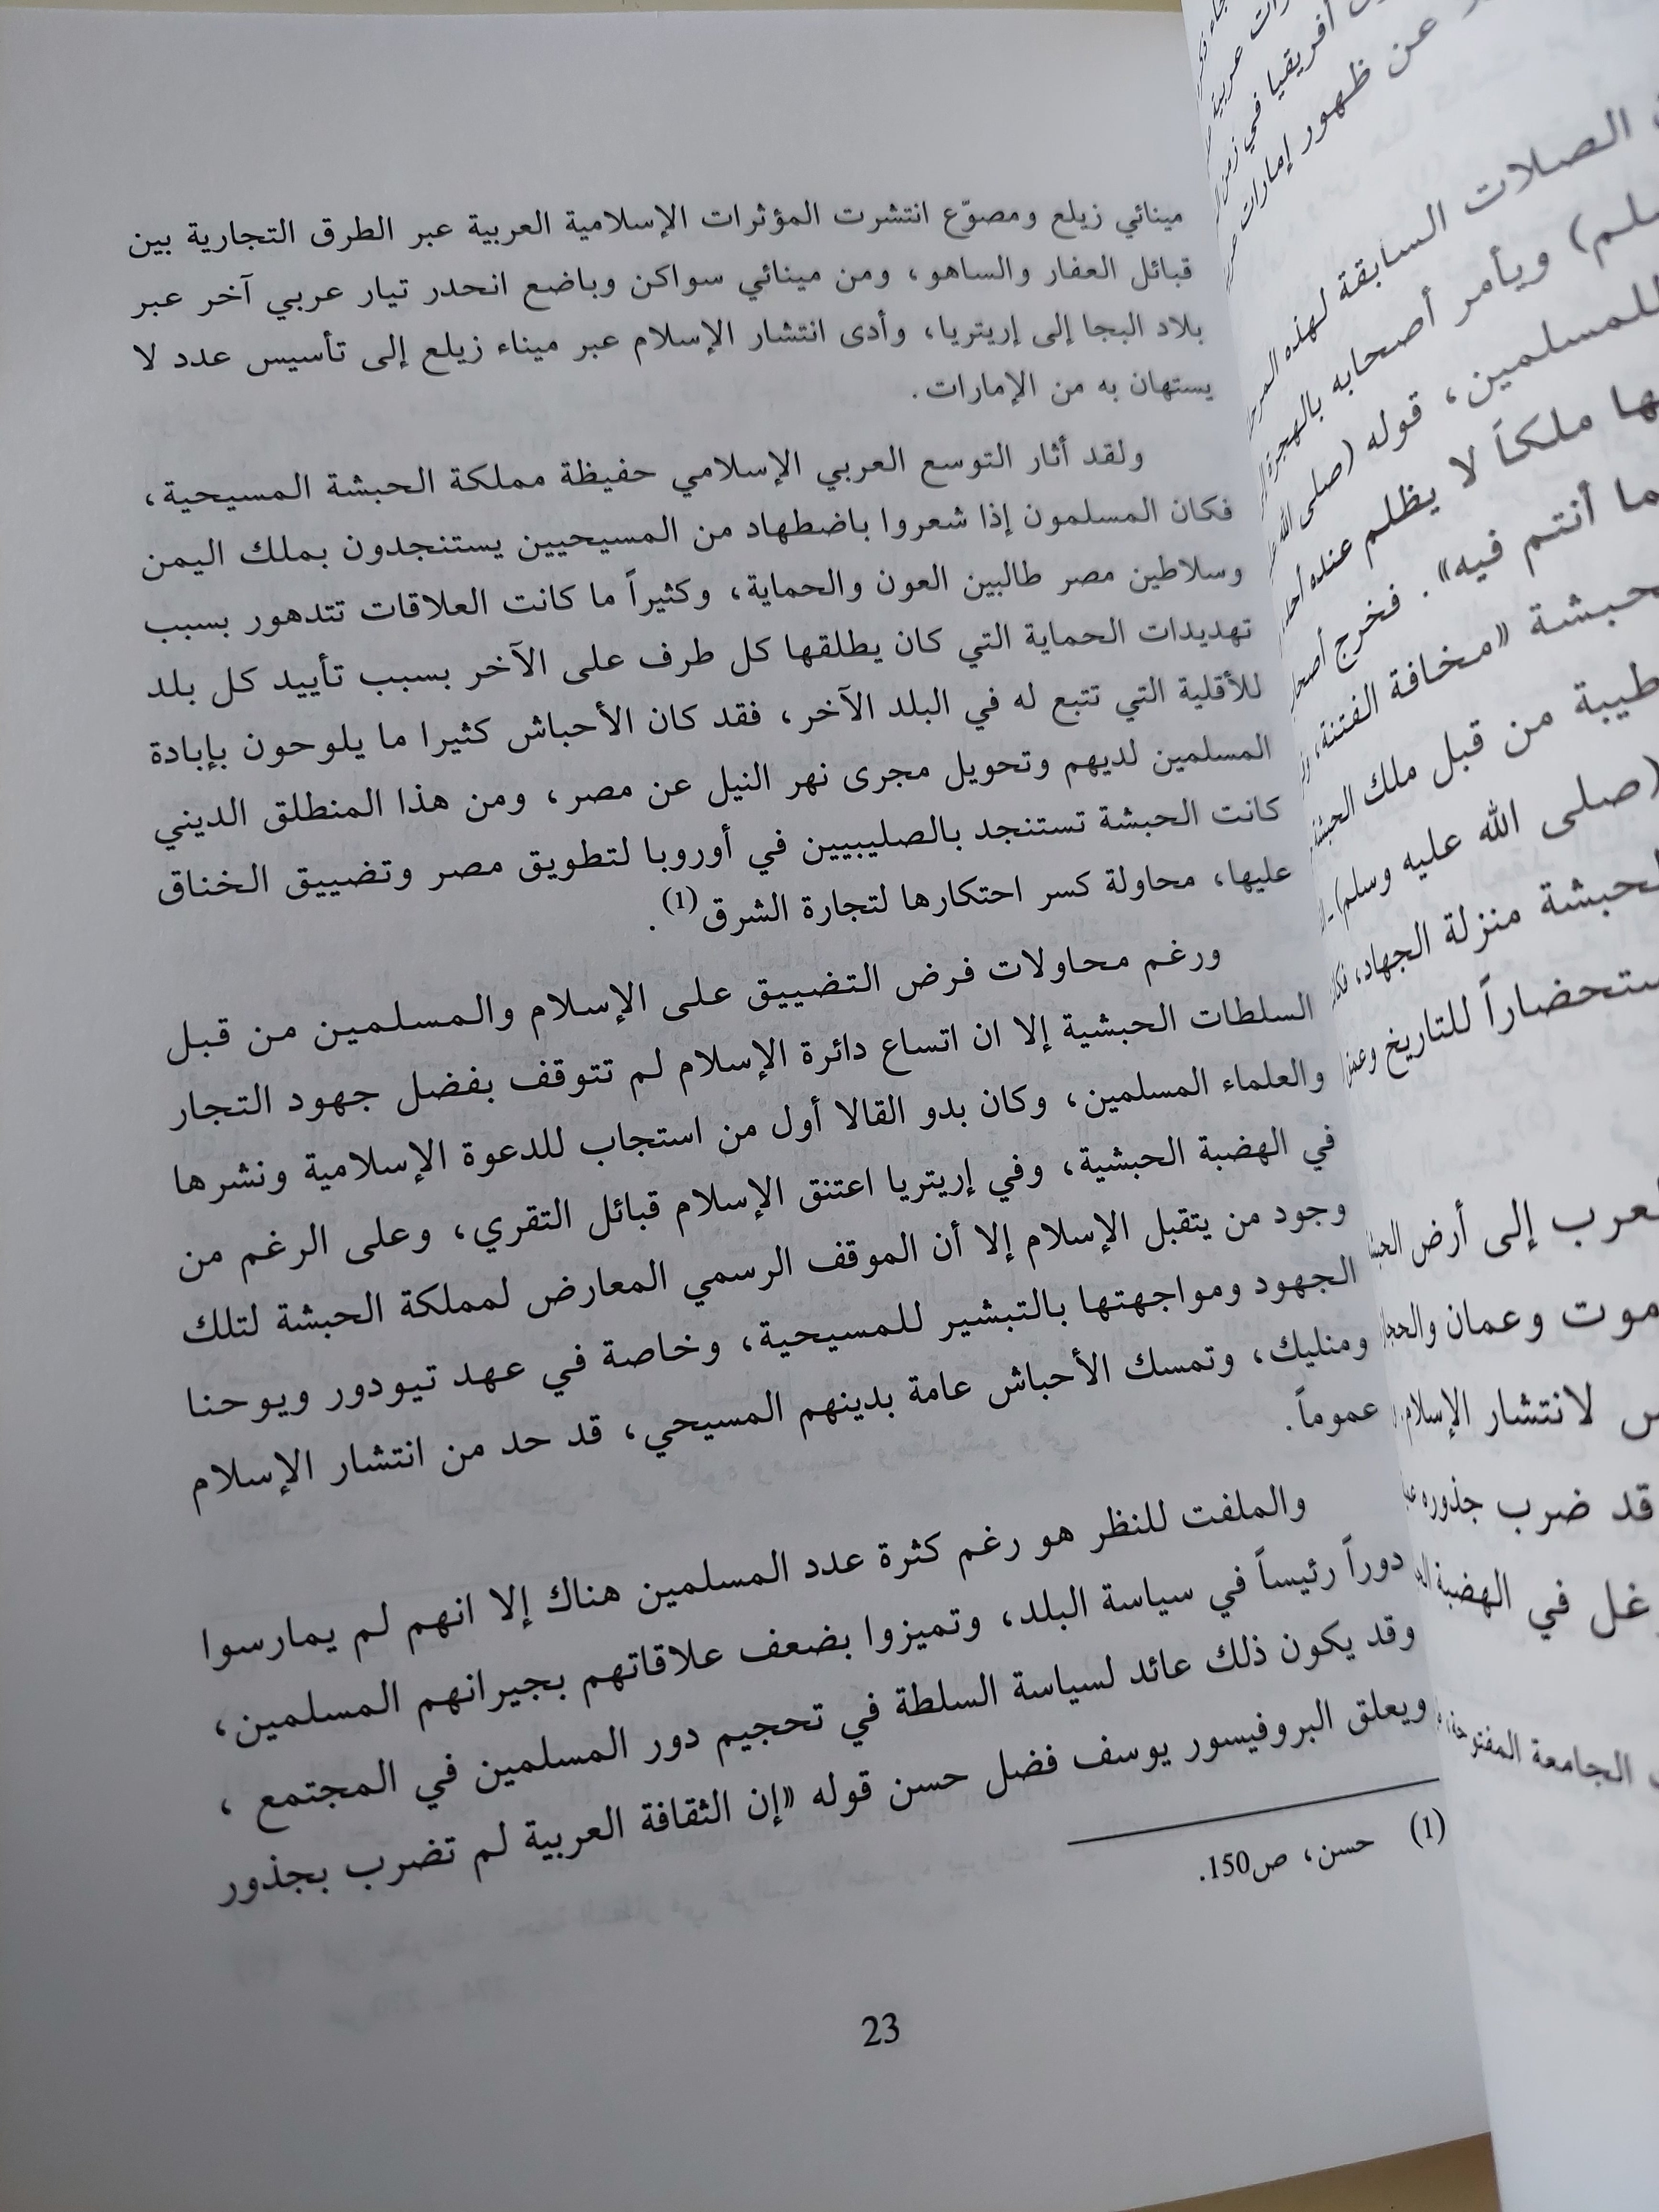 مينائي زيلع ومصوّع انتشرت المؤثرات الإسلامية العربية عبر الطرق التجارية بين
قبائل العفار والساهو، ومن مينائي سواكن وباضع انحدر تيار عربي آخر عبر
بلاد البجا إلى إريتريا، وأدى انتشار الإسلام عبر ميناء زيلع إلى تأسيس عدد لا
يستهان به من الإمارات.
ولقد أثار التوسع العربي الإسلامي حفيظة مملكة الحبشة المسيحية،
فكان المسلمون إذا شعروا باضطهاد من المسيحيين يستنجدون بملك اليمن
وسلاطين مصر طالبين العون والحماية، وكثيراً ما كانت العلاقات تتدهور بسبب
تهديدات الحماية التي كان يطلقها كل طرف على الآخر بسبب تأييد كل بلد
للأقلية التي تتبع له في البلد الآخر، فقد كان الأحباش كثيرا ما يلوحون بإبادة
المسلمين لديهم وتحويل مجرى نهر النيل عن مصر، ومن هذا المنطلق الديني
كانت الحبشة تستنجد بالصليبيين في أوروبا لتطويق مصر وتضييق الخناق
عليها، محاولة كسر احتكارها لتجارة الشرق(1).
ورغم محاولات فرض التضييق على الإسلام والمسلمين من قبل
السلطات الحبشية إلا ان اتساع دائرة الإسلام لم تتوقف بفضل جهود التجار
والعلماء المسلمين، وكان بدو القالا أول من استجاب للدعوة الإسلامية ونشرها
في الهضبة الحبشية، وفي إريتريا اعتنق الإسلام قبائل التقري، وعلى الرغم من
وجود من يتقبل الإسلام إلا أن الموقف الرسمي المعارض لمملكة الحبشة لتلك
الجهود ومواجهتها بالتبشير للمسيحية، وخاصة في عهد تيودور ويوحنا
ومنليك، وتمسك الأحباش عامة بدينهم المسيحي، قد حد من انتشار الإسلام
عموماً.
والملفت للنظر هو رغم كثرة عدد المسلمين هناك إلا انهم لم يمارسوا
دوراً رئيساً في سياسة البلد، وتميزوا بضعف علاقاتهم بجيرانهم المسلمين،
وقد يكون ذلك عائد لسياسة السلطة في تحجيم دور المسلمين في المجتمع ،
ويعلق البروفيسور يوسف فضل حسن قوله «إن الثقافة العربية لم تضرب بجذور
(1) حسن، ص150.
23
أفريقيا في زمن
عن ظهور إمارات
الصلات السابقة لهذه
ويأمر أصحابه بالهجرة
للمسلمين، قوله (صلى الله
ملكاً لا يظلم عنده أحد
ما أنتم فيه». فخرج
«مخافة الفتنة،
طيبة من قبل ملك الحبشة
(صلى الله عليه وسلم)
منزلة الجهاد،
للتاريخ
إلى أرض
وعمان
لانتشار الإسلام
قد ضرب جذوره
في الهضبة
الجامعة المفتوحة،